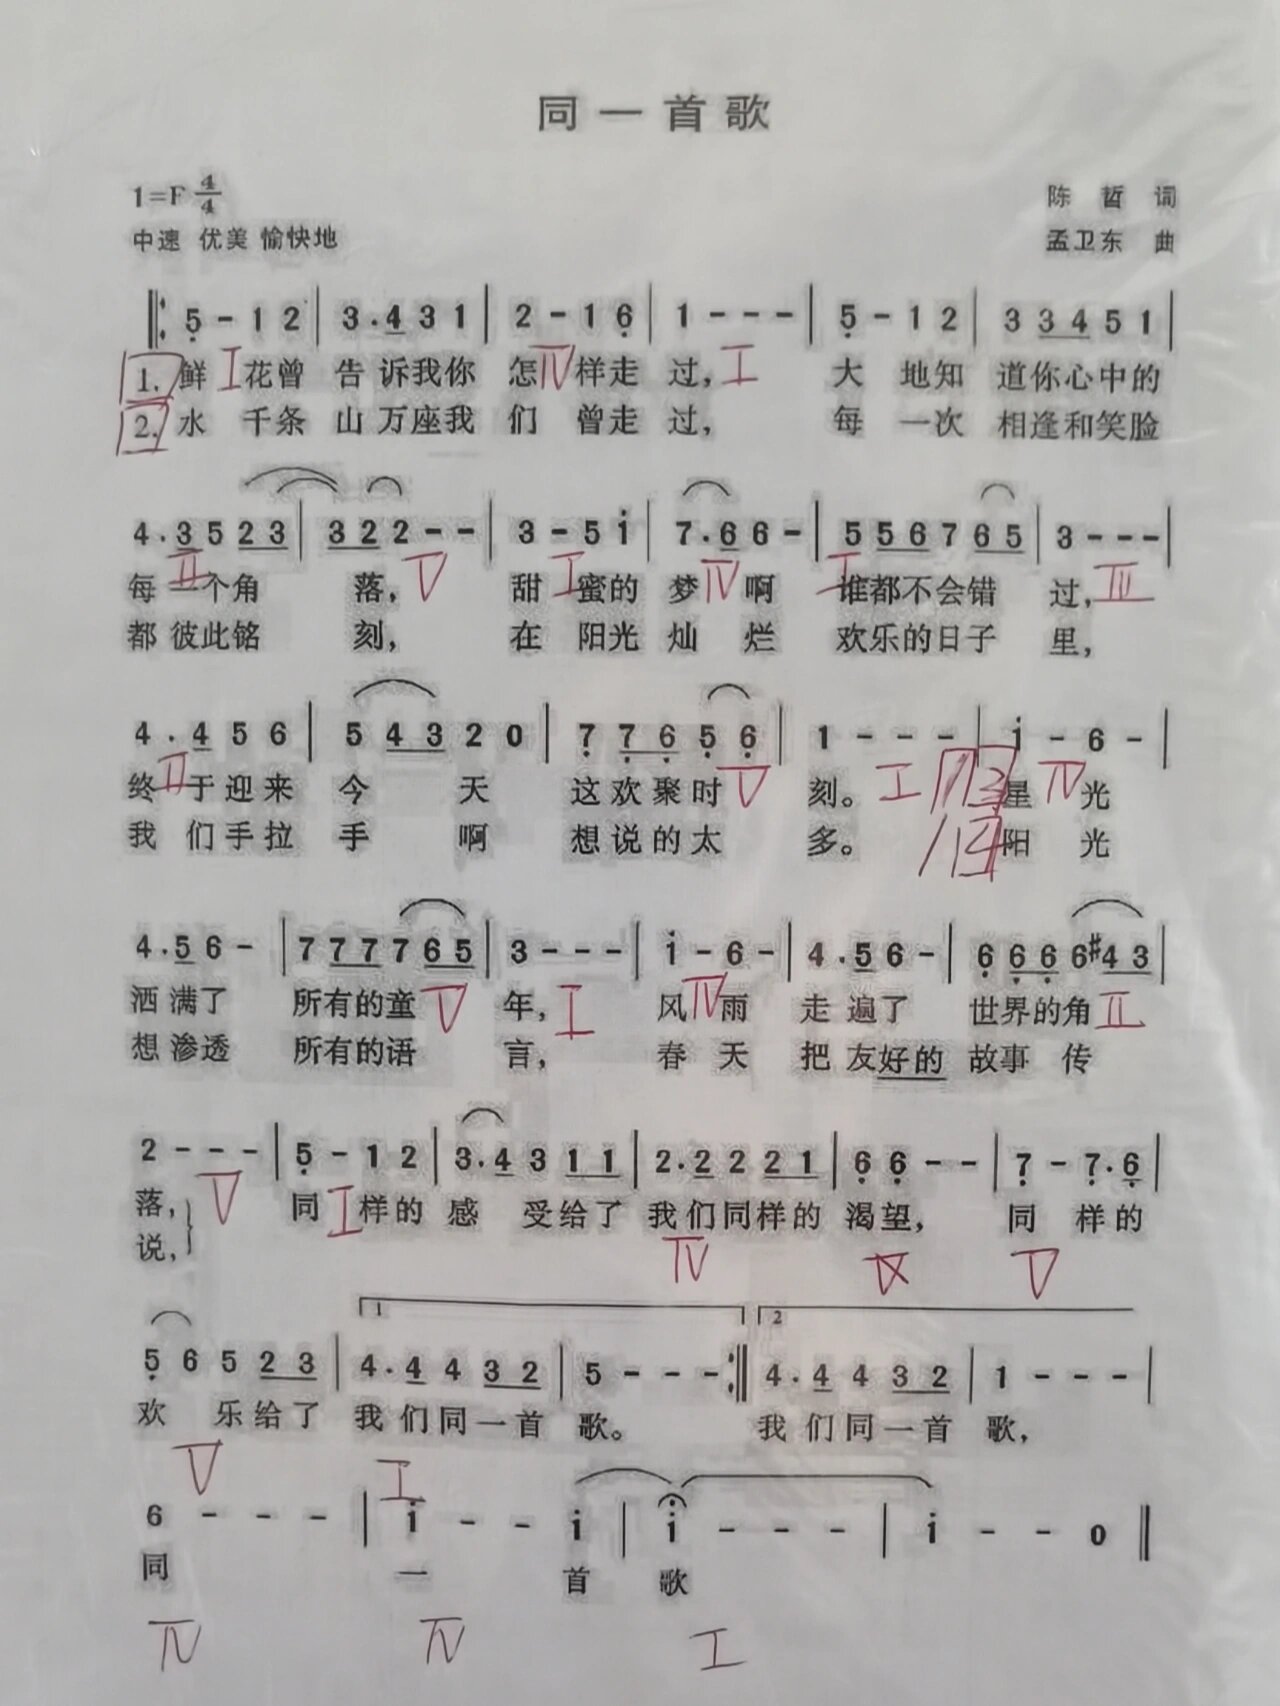 同一首歌
1=F 4/4
陈哲 词
中速 优美 愉快地
孟卫东 曲
5 - 1 2 | 3 . 4 3 1 | 2 - 1 6 | 1 - - - | 5 - 1 2 | 3 3 4 5 1 |
1. 鲜 I 花曾 告 诉我你 怎 IV 样走 过， I 大 地知 道你心中的
2. 水 千条 山 万座我 们 曾走 过， 每 一次 相逢和笑脸
4 . 3 5 2 3 | 3 2 2 - - | 3 - 5 i | 7 . 6 6 - | 5 5 6 7 6 5 | 3 - - - |
每 II 个角 落， V 甜 I 蜜的 梦 IV 啊 I 谁都不会错 过， III
都 彼此铭 刻， 在 阳光 灿 烂 欢乐的日子 里，
4 . 4 5 6 | 5 4 3 2 0 | 7 7 6 5 6 | 1 - - - | i - 6 - |
终 II 于迎来 今 天 这欢聚时 V 刻。 I 星 IV 光
我 们手拉 手 啊 想说的太 多。 阳 光
4 . 5 6 - | 7 7 7 7 6 5 | 3 - - - | i - 6 - | 4 . 5 6 - | 6 6 6 6 #4 3 |
洒 满了 所有的童 V 年， I 风 IV 雨 走 遍了 世界的角 II
想 渗透 所有的语 言， 春 天 把 友好的 故事 传
2 - - - | 5 - 1 2 | 3 . 4 3 1 1 | 2 . 2 2 2 1 | 6 6 - - | 7 - 7 . 6 |
落， V 同 I 样的 感 受给了 我们同样的 渴望， 同 样的
说，
IV V
1 2
5 6 5 2 3 | 4 . 4 4 3 2 | 5 - - - :| 4 . 4 4 3 2 | 1 - - - |
欢 乐给了 我们同一首 歌。 我们同一首 歌，
V I
6 - - - | i - - i | i - - - | i - - 0 ‖
同 一 首 歌
IV IV I